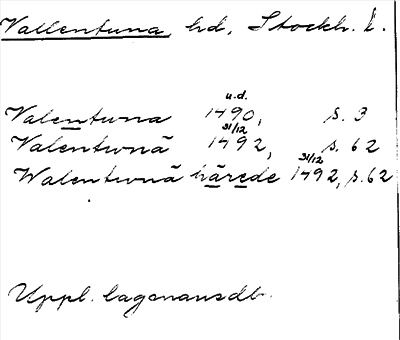 Vallentuna hd, Stockh. l.
u.d.
Valentuna 1490, s. 3
31/12
Valentwnā 1492, s. 62
31/12
Walentwnā hārede 1492, s. 62
Uppl. lagmansdb.